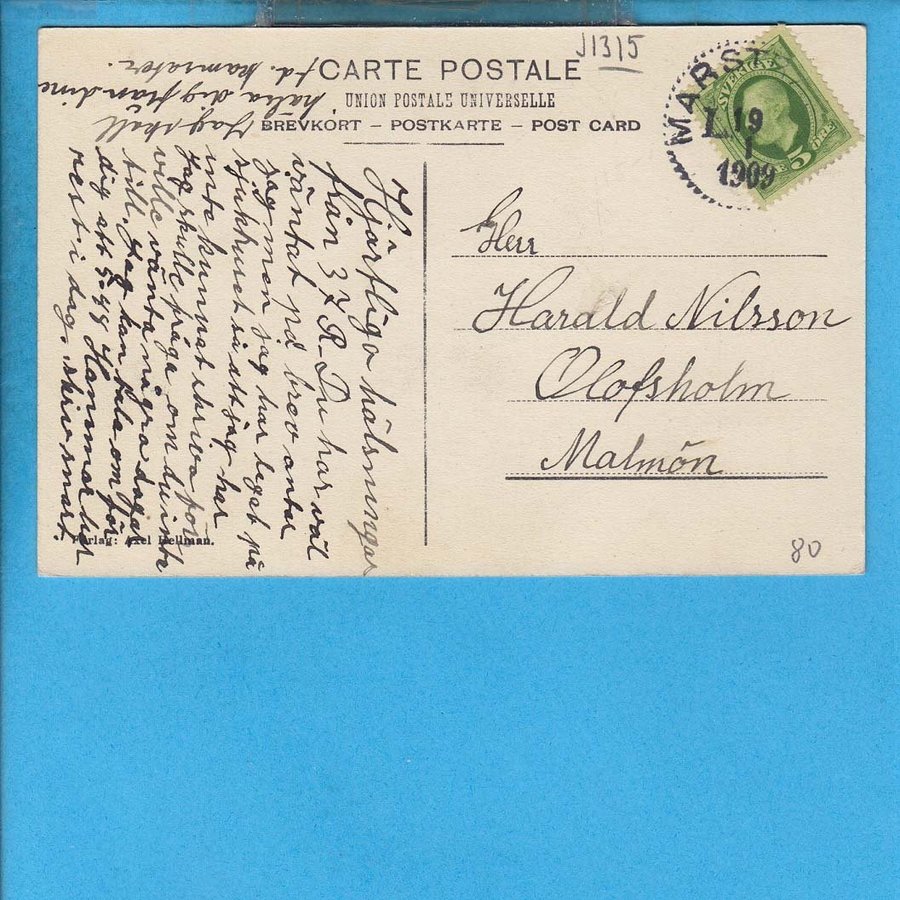 J1315
CARTE POSTALE
UNION POSTALE UNIVERSELLE
BREVKORT – POSTKARTE – POST CARD
MARST
L 19
1
1909
SVERIGE
5 ÖRE
Herr
Harald Nilsson
Olofsholm
Malmön
80
Hjärtliga hälsningar
från 37 R- Du har väl
väntat på brev antar
jag men jag har legat på
sjukhuset så att jag har
inte kunnat skriva för
jag skulle fråga om du inte
ville vänta några dagar
till. Jag kan tala om för
dig att 5-48 Hammar
rest i dag, skriv snart.
Jag skall
hälsa dig från dina
f d. kamrater.
Förlag: Axel Hellman.